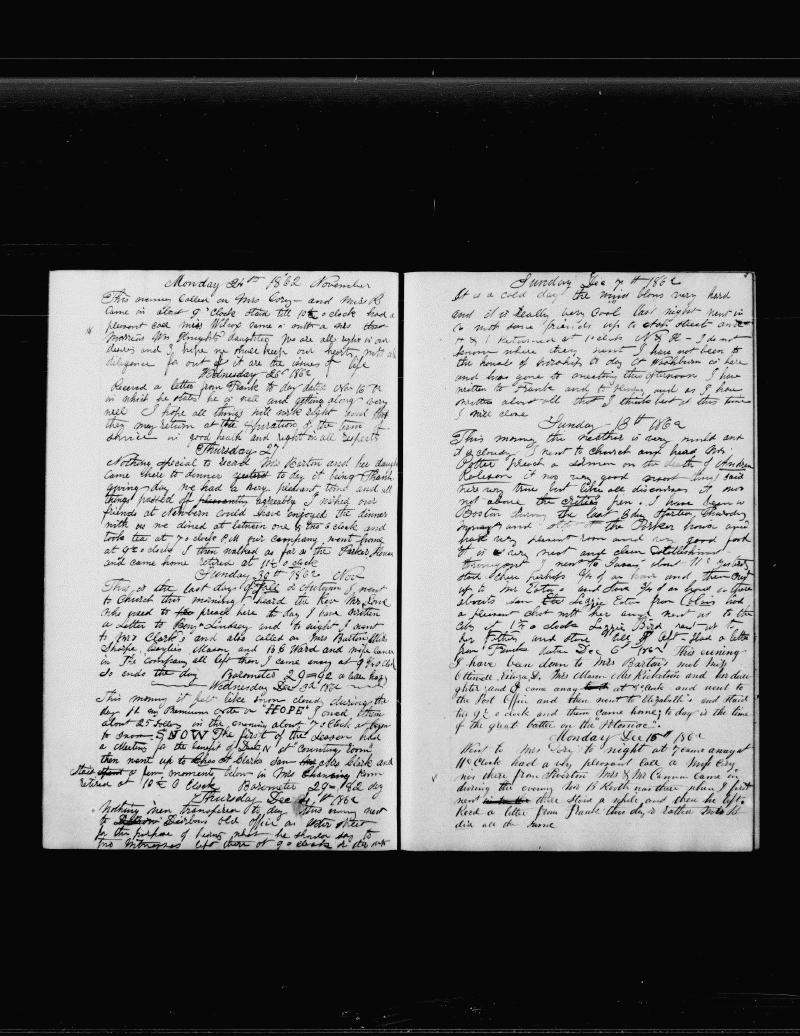 Monday 24th 1862 November
This evening Called on Mrs Cory and Miss B
Came in about 9 oClock Staid till 10 o clock had a
pleasent call Miss Wilcox came in with a Mrs
Morris Wm Knights daughter We are all right in our
desires and I hope we shall keep our hearts with all
diligence for out of it are the issues of life
Wednesday 26th 1862
Received a letter from Frank to day dated Nov 16th
in which he states he is well and getting along very
well I hope all things will work right and that
they may return at the Expiration of the term of
service in good health and right in all respects
Thursday 27
Nothing special to record Mrs Barton and her daughter
came here to dinner to day it being Thanks
giving day we had a very pleasant time and all
things passed off agreeably I wished our
friends at Newbern could have enjoyed the dinner
with us we dined at between one & two o clock and
took tea at 7 o clock P.M. our company went home
at 9 o clock I then walked as far as the Parker House
and came home retired at 11 o clock
Sunday 30th 1862 Nov
This is the last day of Fall or Autumn I went
to Church this morning heard the Rev Mr
who used to preach here to day I have written
a Letter to Benj Lindsey and to night I went
to Mrs Clark's and also called on Mrs Burton Mrs
Sharpe, Mason and Ward and wife Came
in The Company all left then I came away at 9 o Clock
So ends the day Barometer 29=92 a little hazy
Wednesday Dec 3d 1862
This morning it felt like snow cloudy during the
day
about 25 dollars in the evening about 7 o Clock it began
to snow. SNOW The first of the season had
a Meeting for the benefit of at Counting room
then went up to Clarks Saw Mrs Clark and
Staid a few moments below in Mrs Channing Room
retired at 10 O Clock Barometer 29=192 deg
Thursday Dec 4th 1862
Nothing new transpired to day this evening went
to Dearborns old office
for the purpose of hearing what he should say to
two Witnesses left there at 9 o clock
Sunday Dec 7th 1862
It is a cold day the wind blows very hard
and it is really very Cool last night went in
Co with some friends up to State Street and
H & I Returned at 10 clock N & H I do not
know where they went I have not been to
the house of worship to day Washburn is here
and has gone to meeting this afternoon I have
written to Frank and to Henry and as I have
written about all that I think best at this time
I will close
Sunday 13th 1862
This morning the weather is very mild and
it is cloudy I went to Church and heard Rev.
Potter preach a sermon on the death of Andrew
Robeson it was very good and I said
were very true but like all discourses it was
not above the critics pen I have been in
Boston during the last Eday Harlow Thursday
and at the Parker house and
had very pleasant room and very good food
It is a very neat and clean establishment
I went to Sarah's about 11 yesterday
staid there perhaps 3/4 of an hour and then
up to Mr Eaton's and staid 3/4 of an hour or there
abouts saw Lizzie Eaton from had
a pleasant chat with her and went in to the
City at 1 1/2 o clock Lizzie Bird went with
her Father, and staid till I left Had a letter
from Frank date Dec 6th 1862 This evening
I have been down to Mrs Bartons met Miss
Ottiwell, Eliza D. Mrs Mason Mrs Ricketson and her dau
ghter and I came away at 9 Clock and went to
the Post Office and then went to Elizabeth's and staid
till 9 1/2 o clock and then came home; to day is the time
of the great battle on the "Potomac".
Monday Dec 15th 1862
Went to Mrs Cory to night at 7 came away at
11 Clock had a very pleasant Call a Miss Cory
was there from Riverton Mrs & Mr Cannon Came in
during the evening Mr B Keith was there when I first
went there staid a while and then he left.
Recd a letter from Frank this day
did all the same